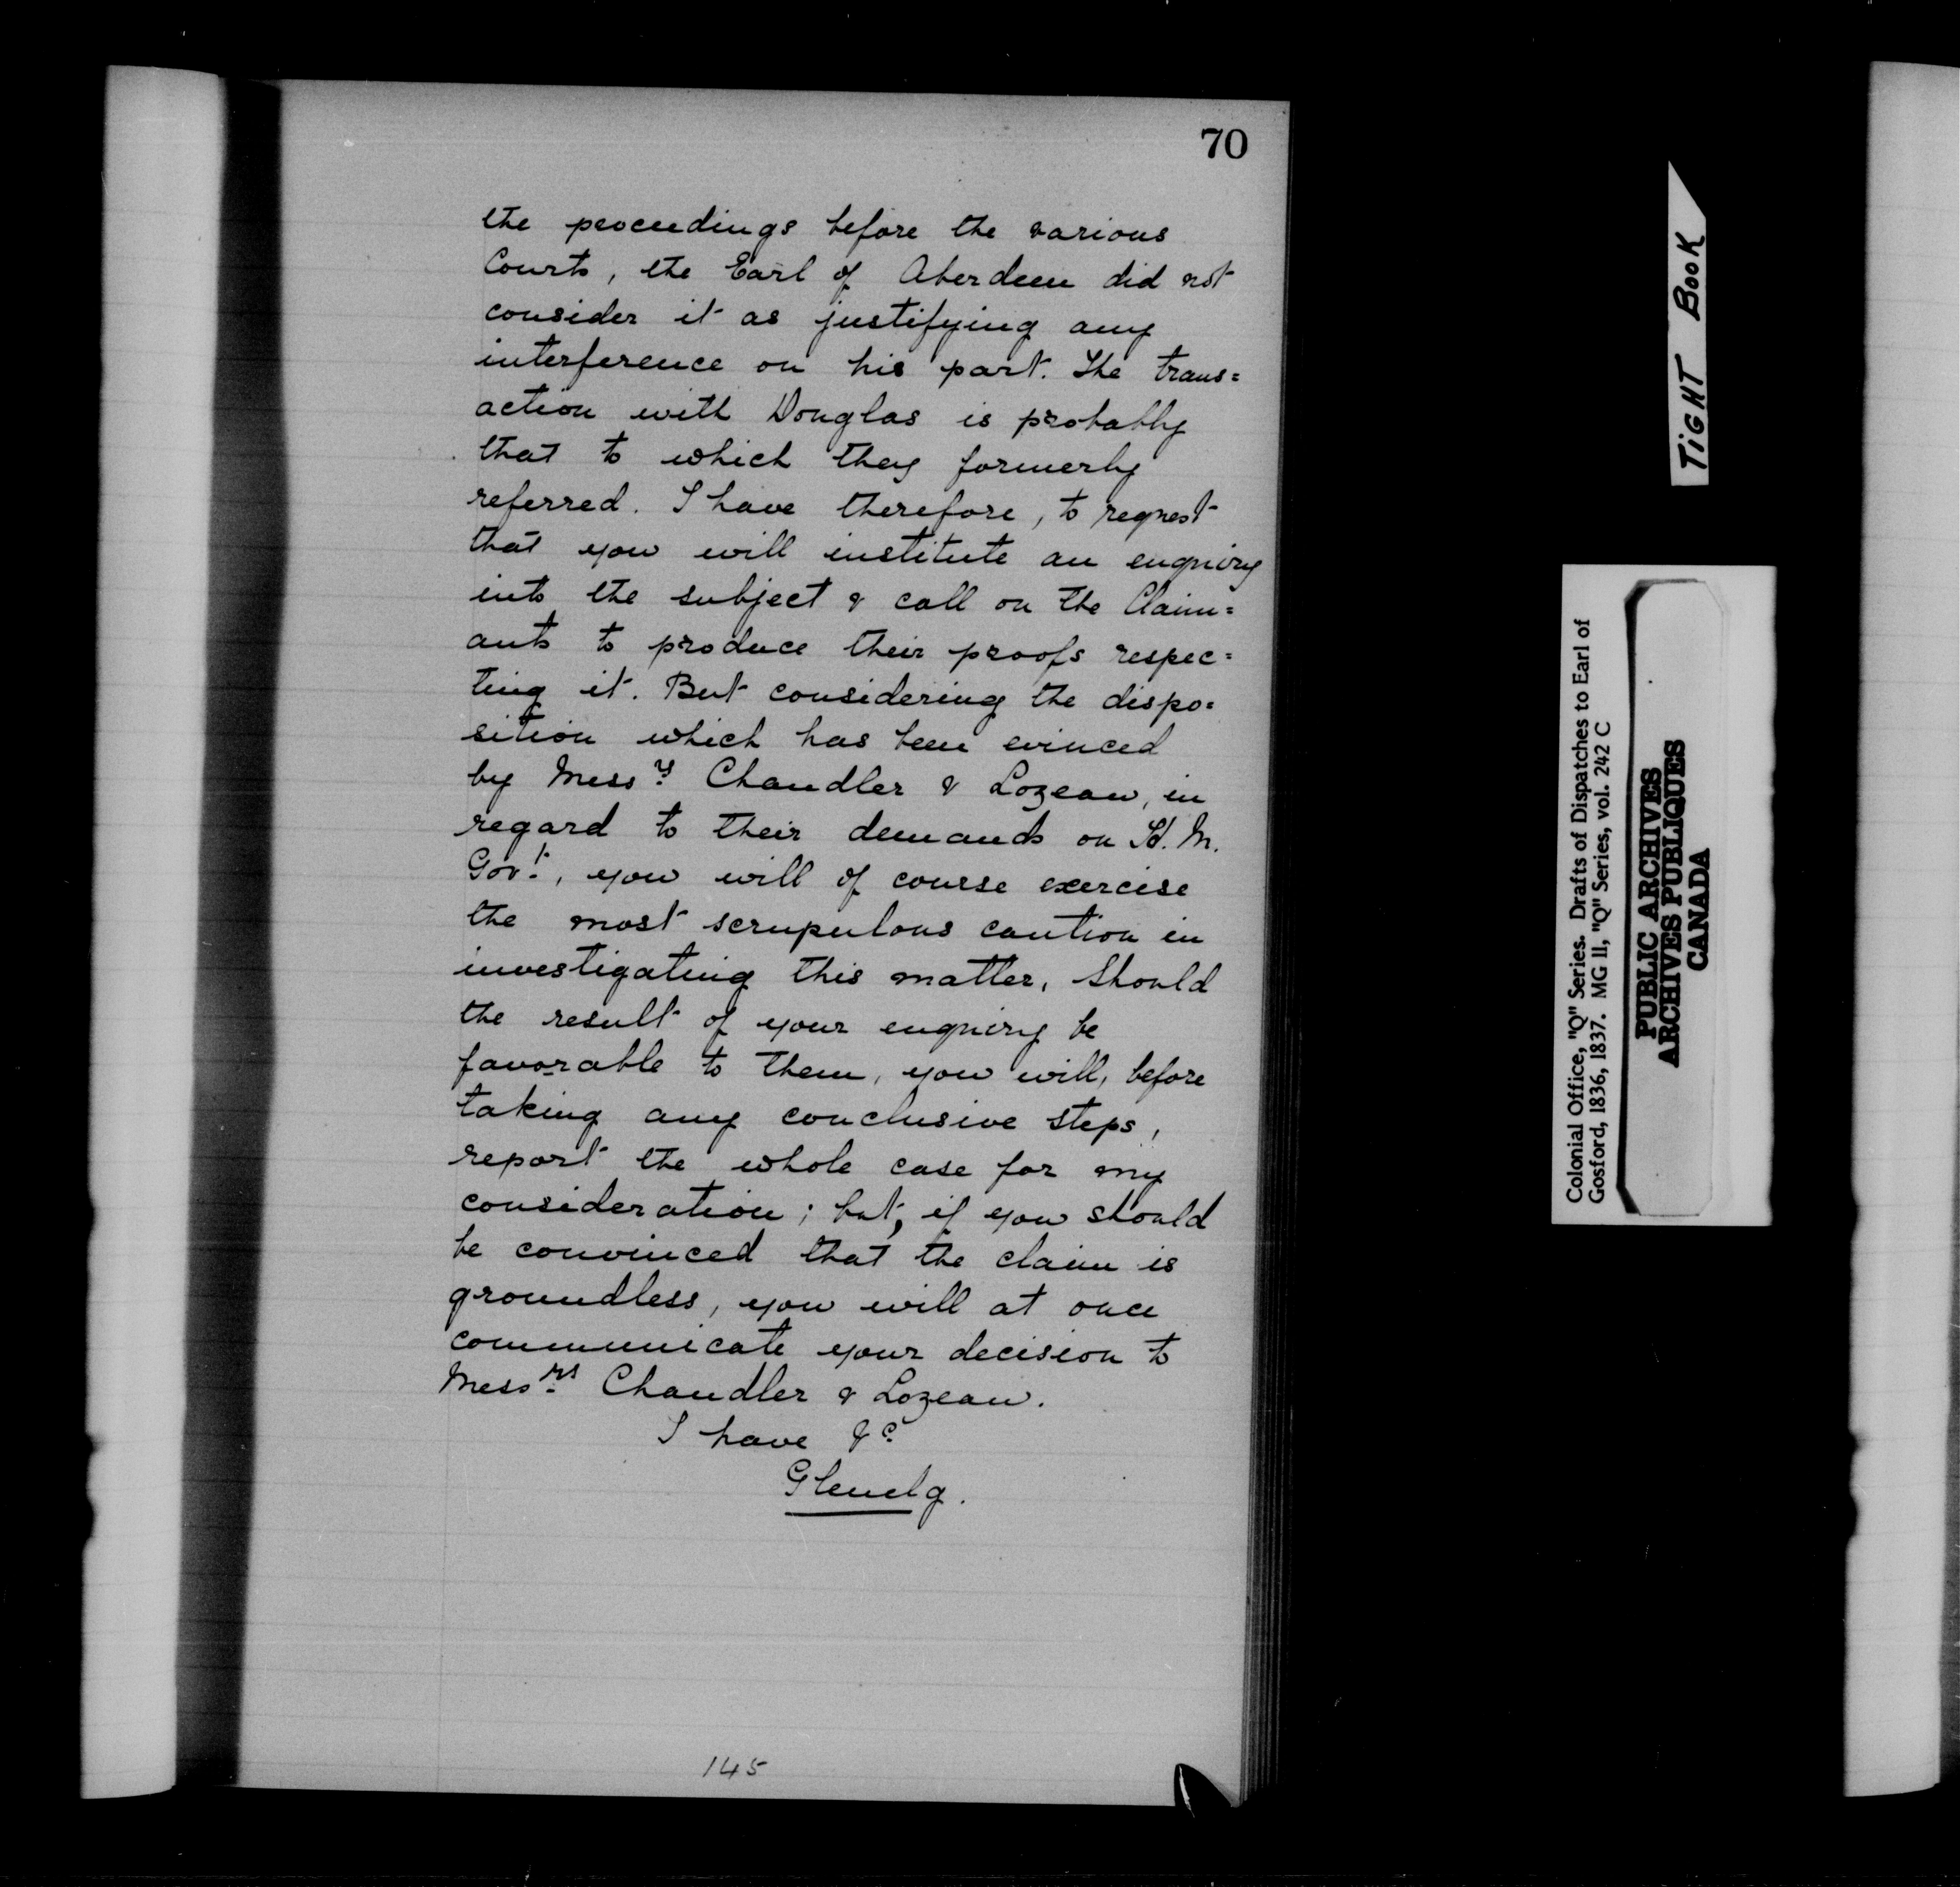 70
the proceedings before the various
Courts, the Earl of Aberdeen did not
consider it as justifying any
interference on his part. The trans=
action with Douglas is probably
that to which they formerly
referred. I have therefore, to request
that you will institute an enquiry
into the subject & call on the Claim=
ants to produce their proofs respec=
ting it. But considering the dispo=
sition which has been evinced
by Messrs Chandler & Lozeau, in
regard to their demands on H. M.
Govt, you will of course exercise
the most scrupulous caution in
investigating this matter, Should
the result of your enquiry be
favorable to them, you will, before
taking any conclusive steps,
report the whole case for my
consideration; but, if you should
be convinced that the claim is
groundless, you will at once
communicate your decision to
Messrs Chandler & Lozeau.
I have &c
Glenelg.
145
TIGHT BOOK
Colonial Office, "Q" Series. Drafts of Dispatches to Earl of
Gosford, 1836, 1837. MG 11, "Q" Series, vol. 242 C
PUBLIC ARCHIVES
ARCHIVES PUBLIQUES
CANADA